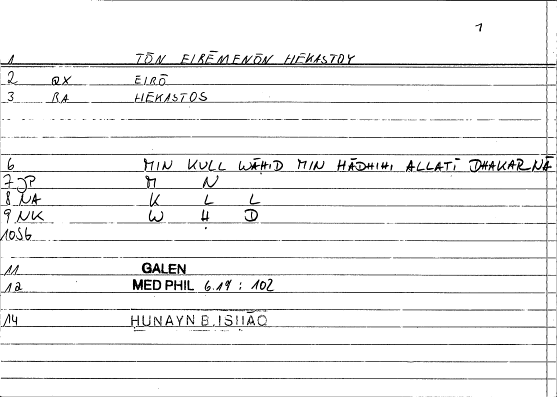 1
1 TŌN EIRĒMENŌN HEKASTOY
2 QX EIRŌ
3 RA HEKASTOS
6 MIN KULL WĀḤID MIN HĀDHIHI ALLATĪ DHAKARNĀ
7 JP M N
8 NA K L L
9 NK W Ḥ D
10 S6
11 GALEN
12 MED PHIL 6.19 : 102
14 ḤUNAYN B. ISḤĀQ